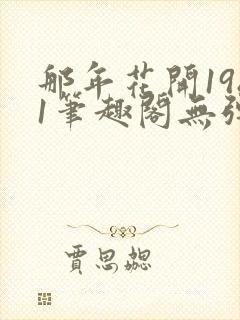 那年花開19
1筆趣閣無彈
賈思勰